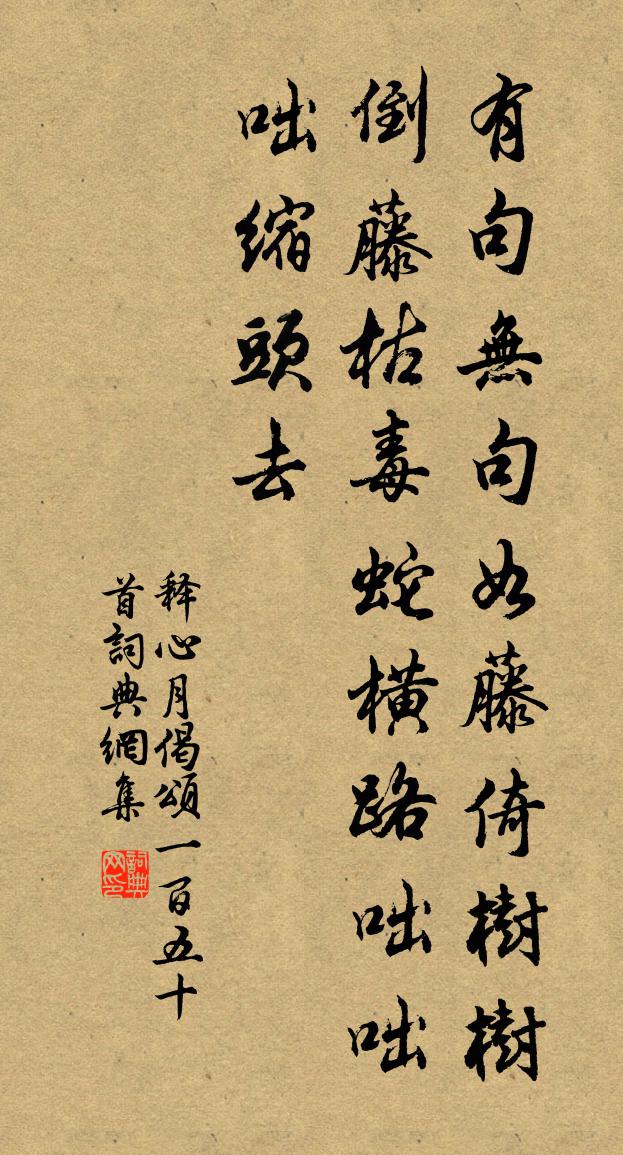 有句無句如藤倚樹樹
倒藤枯毒蛇橫路咄咄
咄縮頭去
释心月偈頌一百五十
首詞典網集
詞典網印